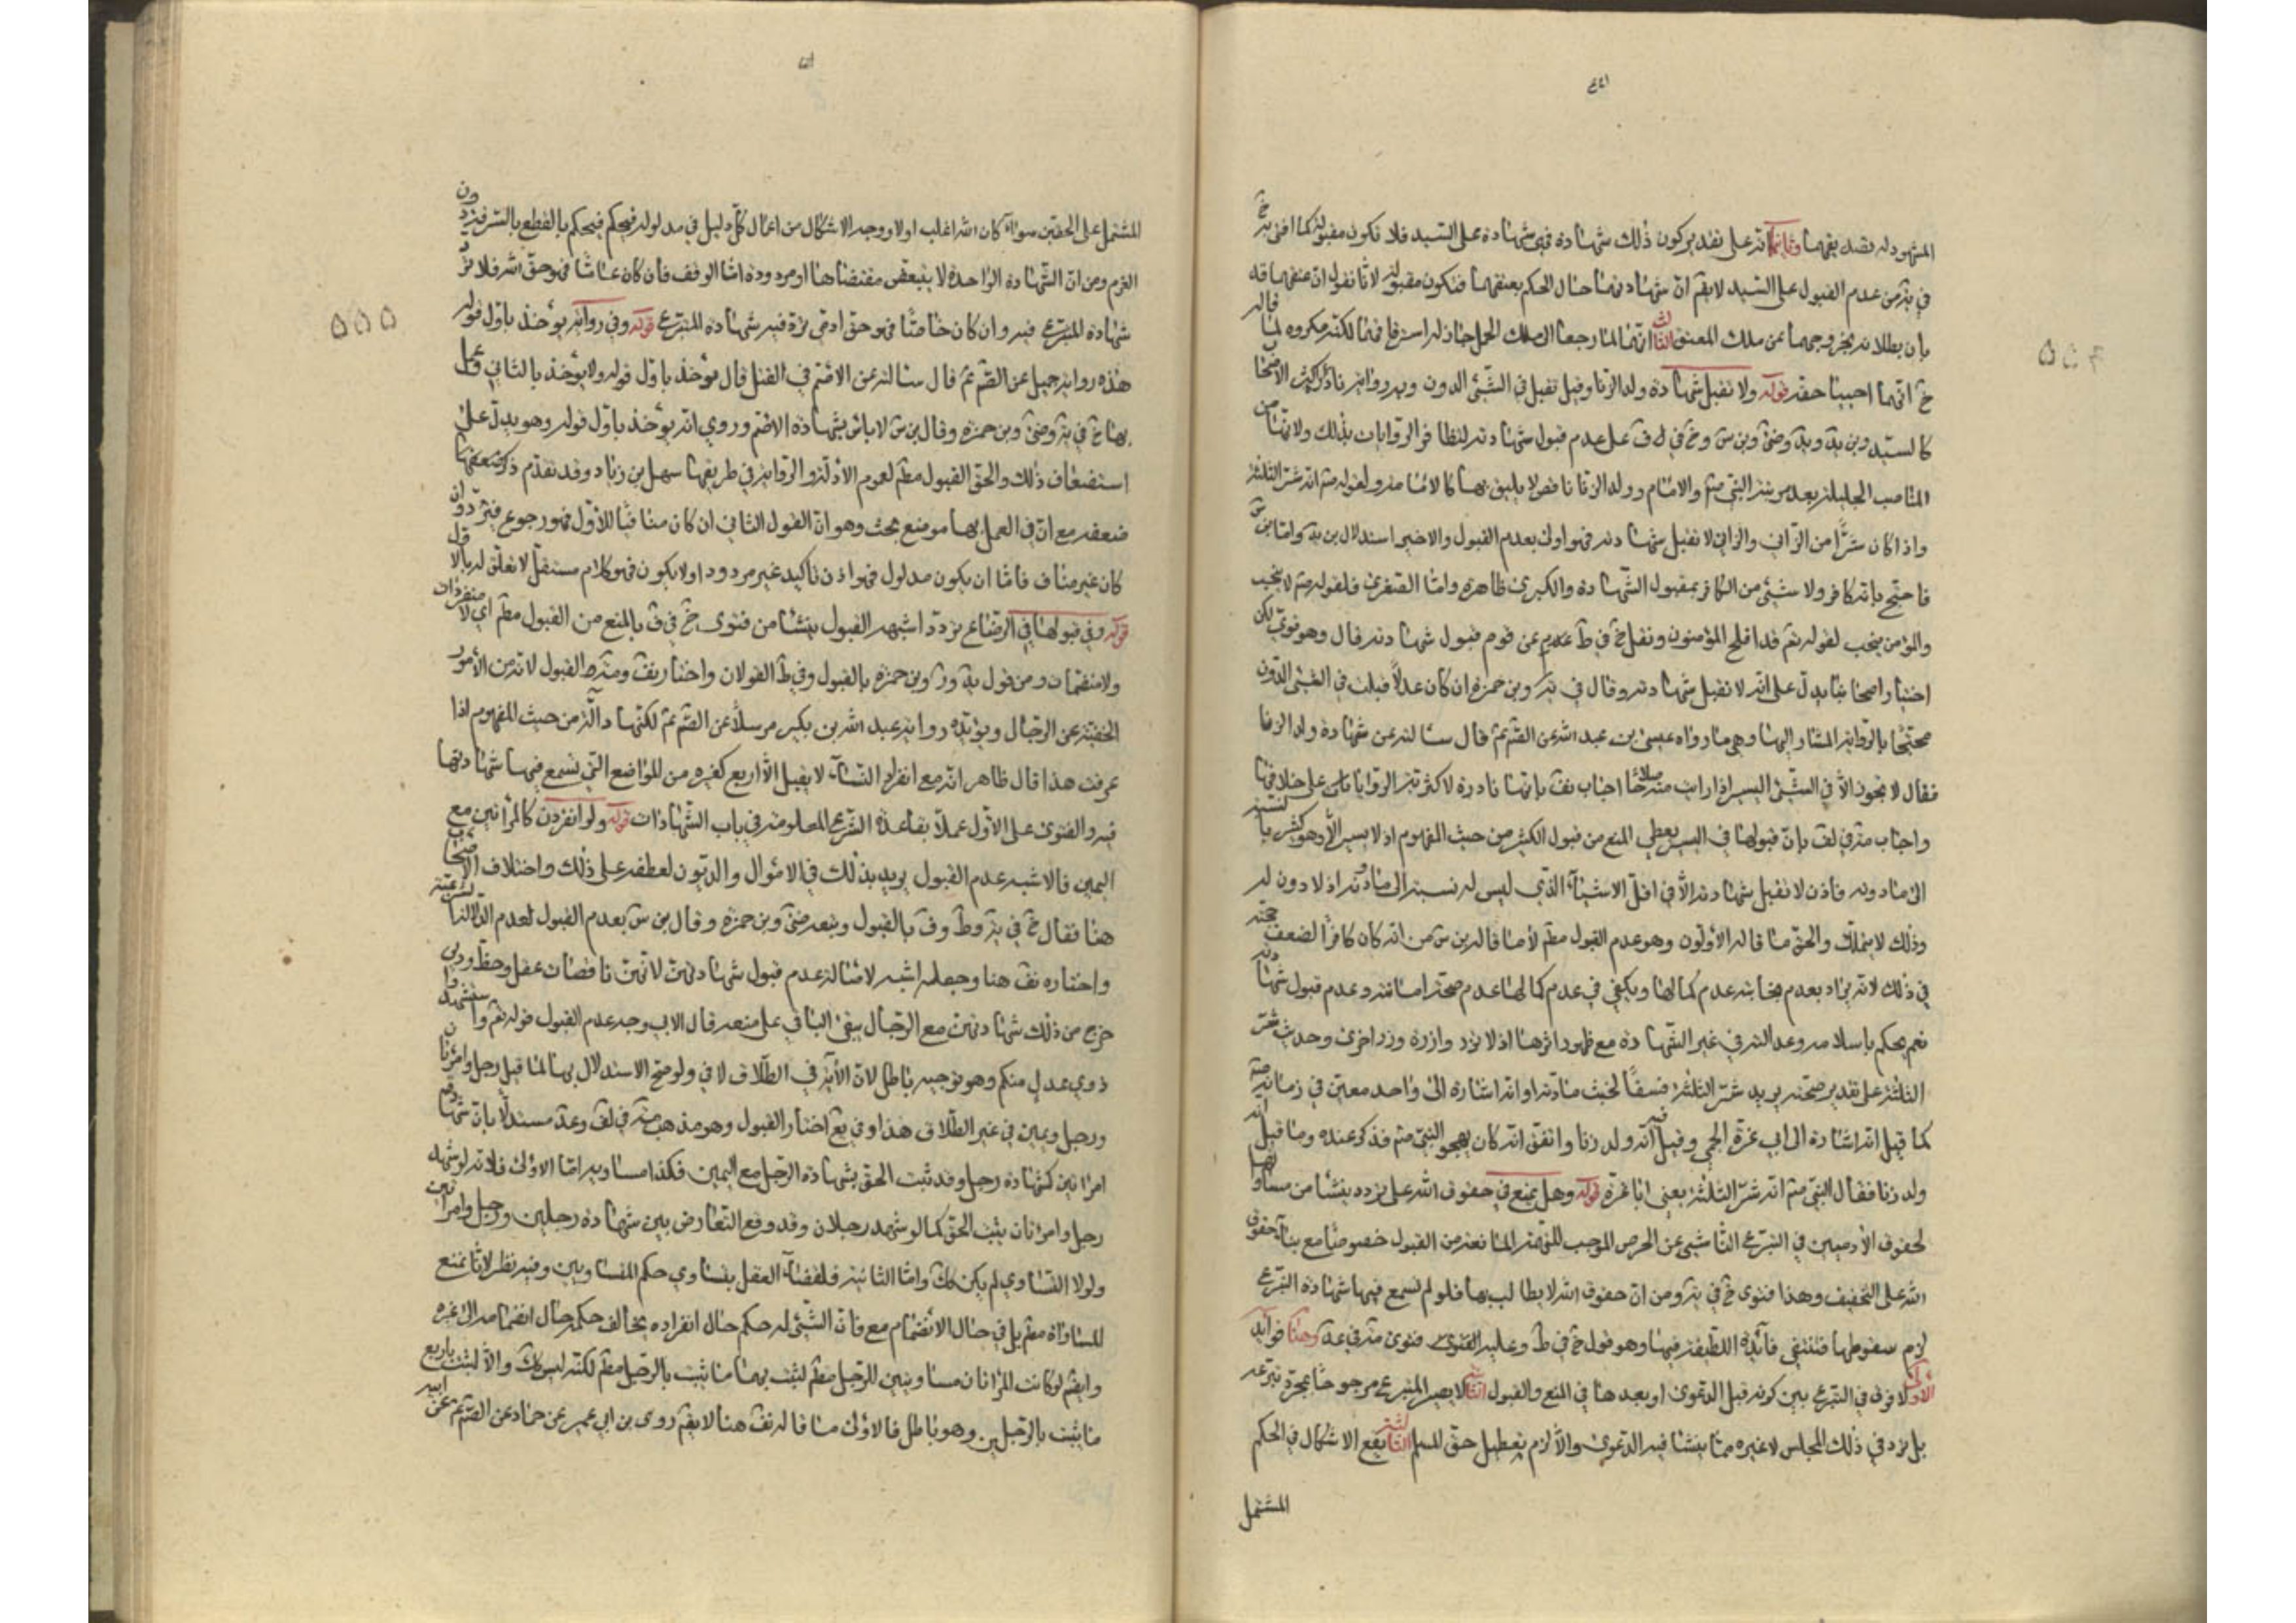 المشهود له بقصد بقهما وثانيهما انه على تقدير كون ذلك شهادة فهي شهادة على السيد فلا تكون مقبولة كما افتى به خ
في يه من عدم القبول على السيد لا يقم ان شهادتهما حال الحكم بعتقهما فتكون مقبولة لانا نقول ان عتقهما قد
بان بطلانه بخروجهما عن ملك المعتق الثالث انهما لما رجعا الى ملك الحمل جاز له استرقاقهما لكنه مكروه لما قاله
خ انهما احييا حقه قوله ولا تقبل شهادة ولد الزنا وقيل تقبل في الشئ الدون وبه رواية نادرة اكثر الاصحاب
كالسيد وبن يه ويه وضى وبن س وخ في ف على عدم قبول شهادته لتظافر الروايات بذلك ولانها من
المناصب الجليلة بعد مرتبة النبي صم والامام وولد الزنا ناقص لا يليق بها كالامامة ولقوله صم انه شر الثلثة
واذا كان شرا من الزاني والزاني لا تقبل شهادته فهو اولى بعدم القبول والاخير استدلال بن يه واما بن س
فاحتج بانه كافر ولا شئ من الكافر بمقبول الشهادة والكبرى ظاهرة واما الصغرى فلقوله صم لا ينجب
والمؤمن ينجب لقوله تعم قد افلح المؤمنون ونقل خ في ط عن قوم قبول شهادته قال وهو قوي لكن
اخبار اصحابنا يدل على انه لا تقبل شهادته وقال في يه وبن حمزة ان كان عدلا قبلت في الشئ الدون
محتجا بالرواية المشار اليها وهي ما رواه عيسى بن عبد الله عن الصم عم قال سالته عن شهادة ولد الزنا
فقال لا تجوز الا في الشئ اليسير اذا رايت منه صلاحا اجاب نف بانها نادرة لاكثرية الروايات على خلافها
واجاب مه في لف بان قبولها في اليسير يعطي المنع من قبول الكثير من حيث المفهوم اذ لا يسير الا وهو كثير بالنسبة
الى ما دونه فاذن لا تقبل شهادته الا في اقل الاشياء الذي ليس له نسبة الى ما دونه اذ لا دون له
وذلك لا يتملك والحق ما قاله الاولون وهو عدم القبول مطم لا ما قاله بن س من انه كان كافرا لضعف حجته
في ذلك لانه يراد بعدم نجابته عدم كمالها ويكفي في عدم كمالها عدم صحة امامته وعدم قبول شهادته
نعم يحكم باسلامه وعدالته في غير الشهادة مع ظهور اثرها اذ لا تزر وازرة وزر اخرى وحديث شر
الثلثة على تقدير صحته يريد شر الثلثة فسقا لخبث مادته او انه اشارة الى واحد معين في زمانه صم
كما قيل انه اشارة الى ابي عزة الجمحي وقيل فيه انه ولد زنا واتفق انه كان يهجو النبي صم فذكر عنده وما قيل انه
ولد زنا فقال النبي صم انه شر الثلثة يعني ابا عزة قوله وهل يمنع في حقوق الله على تردد ينشا من مساواتها
لحقوق الآدميين في التبرع الناشي عن الحرص الموجب للتهمة المانعة من القبول خصوصا مع بناء حقوق
الله على التخفيف وهذا فتوى خ في يه ومن ان حقوق الله لا يطالب بها فلو لم تسمع فيها شهادة التبرع
لزم سقوطها فتنتفي فائدة اللطيفة فيها وهو قول خ في ط وعليه الفتوى فتوى مه في عد وهنا فوائد
الاولى لا فرق في التبرع بين كونه قبل الدعوى او بعدها في المنع والقبول الثانية لا يصير المتبرع مجروحا بمجرد تبرعه
بل ترد في ذلك المجلس لا غيره مما ينشا فيه الدعوى والا لزم تعطيل حق المسلم الثالثة يقع الاشكال في الحكم
المشتمل
المشتمل على الحقين سواء كان الله اغلب اولا ووجه الاشكال من اعمال كل دليل في مدلوله فيحكم بالقطع بالسرقة دون
الغرم ومن ان الشهادة الواحدة لا يتبعض مقتضاها او مردودة اما الوقف فان كان عاما فهو حق الله فلا ترد
شهادة المتبرع فيه وان كان خاصا فهو حق ادمى ترد فيه شهادة المتبرع قوله وفي رواية يؤخذ باول قوله
هذه رواية جميل عن الصم عم قال سالته عن الاصم في القتل قال يؤخذ باول قوله ولا يؤخذ بالثاني وعمل
بها خ في يه وضى وبن حمزة وقال بن س لا باس بشهادة الاصم وروي انه يؤخذ باول قوله وهو يدل على
استضعاف ذلك والحق القبول مطم لعموم الادلة والرواية في طريقها سهل بن زياد وقد تقدم ذكر ضعفها
ضعفه مع ان في العمل بها موضع بحث وهو ان القول الثاني ان كان منافيا للاول فهو رجوع فيرد وان
كان غير مناف فاما ان يكون مدلول فهو اذن تاكيد غير مردود اولا يكون فهو كلام مستقل لا تعلق له بالاول
قوله وفي قبولها في الرضاع تردد اشبهه القبول ينشا من فتوى خ في ف بالمنع من القبول مطم اي لا منفردات
ولا منضمات ومن قول يه ور وبن حمزة بالقبول وفي ط القولان واختار نف ومه القبول لانه من الامور
الخفية عن الرجال ويؤيده رواية عبد الله بن بكير مرسلا عن الصم عم لكنها دالة من حيث المفهوم اذا
عرفت هذا قال ظاهر انه مع انفراد النساء لا يقبل الا اربع كغيره من المواضع التي تسمع فيها شهادتها
فيه والفتوى على الاول عملا بقاعدة الشرع المعلومة في باب الشهادات قوله ولو انفردن كالمراتين مع
اليمين فالاشبه عدم القبول يريد بذلك في الاموال والديون لعطفه على ذلك واختلاف الاصحاب
هنا فقال خ في يه وط وف بالقبول وتبعه ضى وبن حمزة وقال بن س بعدم القبول لعدم الدلالة الشرعية
واختاره نف هنا وجعله اشبه لاصالة عدم قبول شهادتهن لانهن ناقصات عقل وحظ ودين
خرج من ذلك شهادتهن مع الرجال يبقى الباقي على منعه قال الابي وجه عدم القبول قوله تعم واستشهدوا
ذوي عدل منكم وهو توجيه باطل لان الآية في الطلاق لا في ولو صح الاستدلال بها لما قبل رجل وامرتان
ورجل ويمين في غير الطلاق هذا وفي يع اختار القبول وهو مذهب مه في لف وعد مستدلا بان شهادة
امراتين كشهادة رجل وقد ثبت الحق بشهادة الرجل مع اليمين فكذا مساويه اما الاولى فلانه لو شهد
رجل وامراتان يثبت الحق كما لو شهد رجلان وقد وقع التعارض بين شهادة رجلين ورجل وامراتين
ولولا التساوي لم يكن كك واما الثانية فلقضاء العقل بتساوي حكم المتساويين وفيه نظر لانا نمنع
المساواة مطم بل في حال الانضمام مع فان الشئ له حكم حال انفراده يخالف حكمه حال انضمامه الى غيره
وايضم لو كانت المراتان مساويتين للرجل مطم لثبت بهما ما يثبت بالرجل مطم لكنه ليس كك والا لثبت باربع
ما يثبت بالرجلين وهو باطل فالاولى ما قاله نف هنا لا يقم روى بن ابي عمير عن حماد عن الصم عم عن ابيه